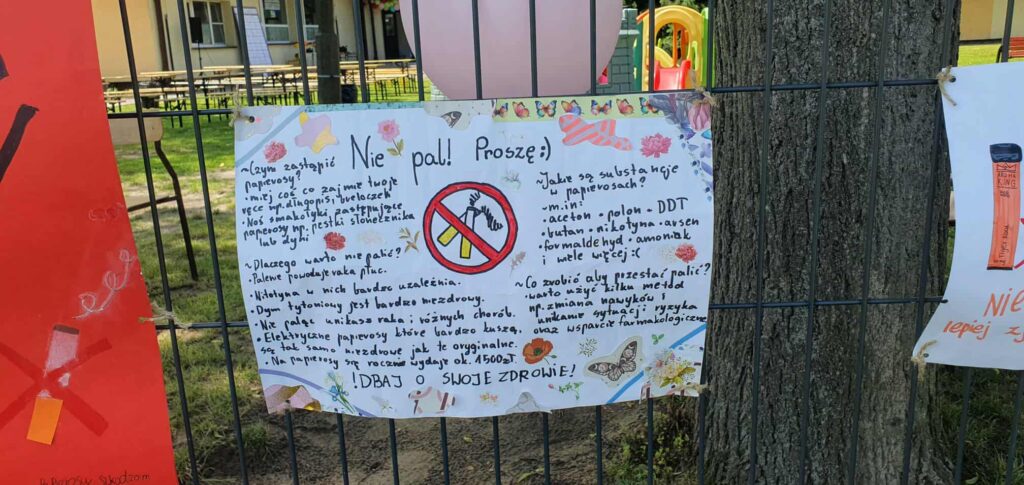 Nie pal! Proszę:)
~Czym zastąpić
papierosy?
• miej coś co zajmie twoje
ręce np. długopis, breloczek
• Noś smakołyki zastępujące
papierosy np. pestki słonecznika
lub dyni
~Dlaczego warto nie palić?
• Palenie powoduje raka płuc.
• Nikotyna w nich bardzo uzależnia.
• Dym tytoniowy jest bardzo niezdrowy.
• Nie paląc unikasz raka i różnych chorób.
• Elektryczne papierosy które bardzo kuszą,
są tak samo niezdrowe jak te oryginalne.
• Na papierosy się rocznie wydaje ok. 1500zł
~Jakie są substancje
w papierosach?
~m.in:
• aceton • polon • DDT
• butan • nikotyna • arsen
• formaldehyd • amoniak
i wiele więcej :(
~Co zrobić aby przestać palić?
• warto użyć kilku metod
np. zmiana nawyków i
unikanie sytuacji ryzyka
oraz wsparcie farmakologiczne
!DBAJ O SWOJE ZDROWIE!
AROMA
KING
lepiej